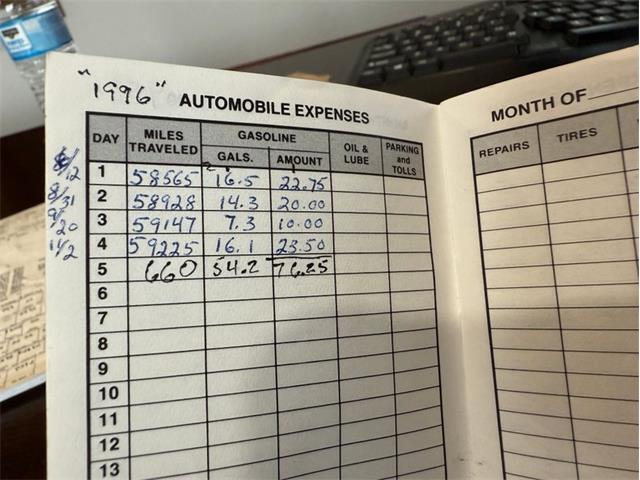 "1996" AUTOMOBILE EXPENSES
DAY MILES TRAVELED GASOLINE GALS. AMOUNT OIL & LUBE PARKING and TOLLS
8/12 1 58565 16.5 22.75
8/31 2 58928 14.3 20.00
9/20 3 59147 7.3 10.00
11/2 4 59225 16.1 23.50
5 660 54.2 76.25
6
7
8
9
10
11
12
13
MONTH OF
REPAIRS TIRES